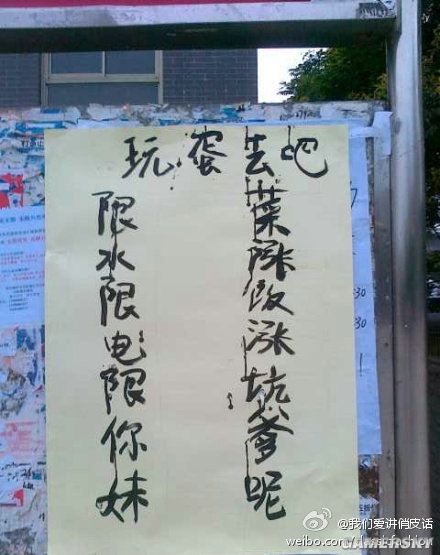 玩蛋去吧
菜涨饭涨坑爹呢
限水限电限你妹
30
30
!
@我们爱讲俏皮话
weibo.com/
GAMERSKY